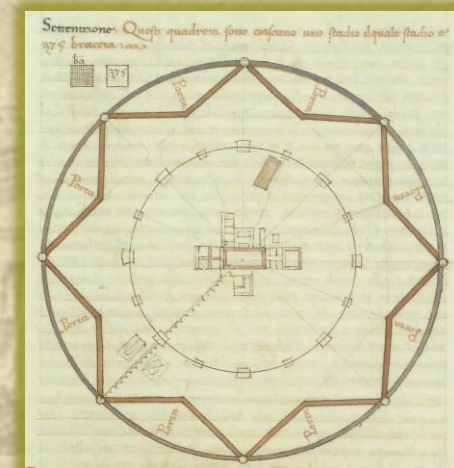 Settentrione. Questi quadretti sono ciascuno uno stadio il quale stadio e
375 braccia
ba
375
Porta
Porta
Porta
Porta
Porta
Porta
Porta
Porta